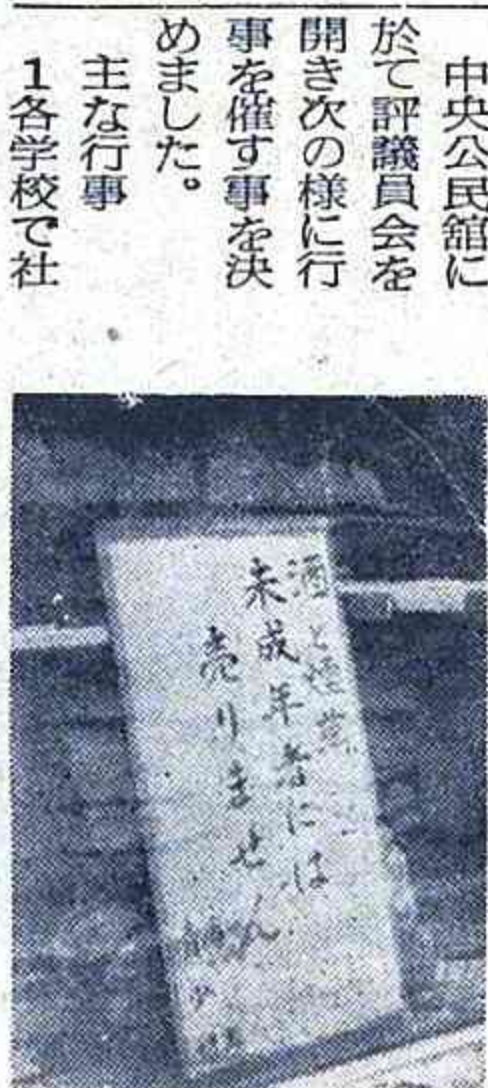 中央公民舘に
於て評議員会を
開き次の様に行
事を催す事を決
めました。
主な行事
1各学校で社
酒と煙草
未成年者には
売りません